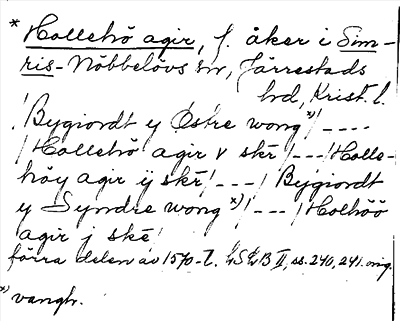 * Hollehö agir, f. åker i Sim-
ris-Nöbbelövs sn, Järrestads
hd, Krist. l.
/Bygiordt ey Östre wong x)/----
/Hollehö agir v skr/---/Holle-
höy agir ij skr/---/Bygiordt
ey Syndre wong x)/---/Holhöö
agir j ske/
förra delen av 1570-t. LSLB II, ss. 240, 241. orig.
x) vangh.